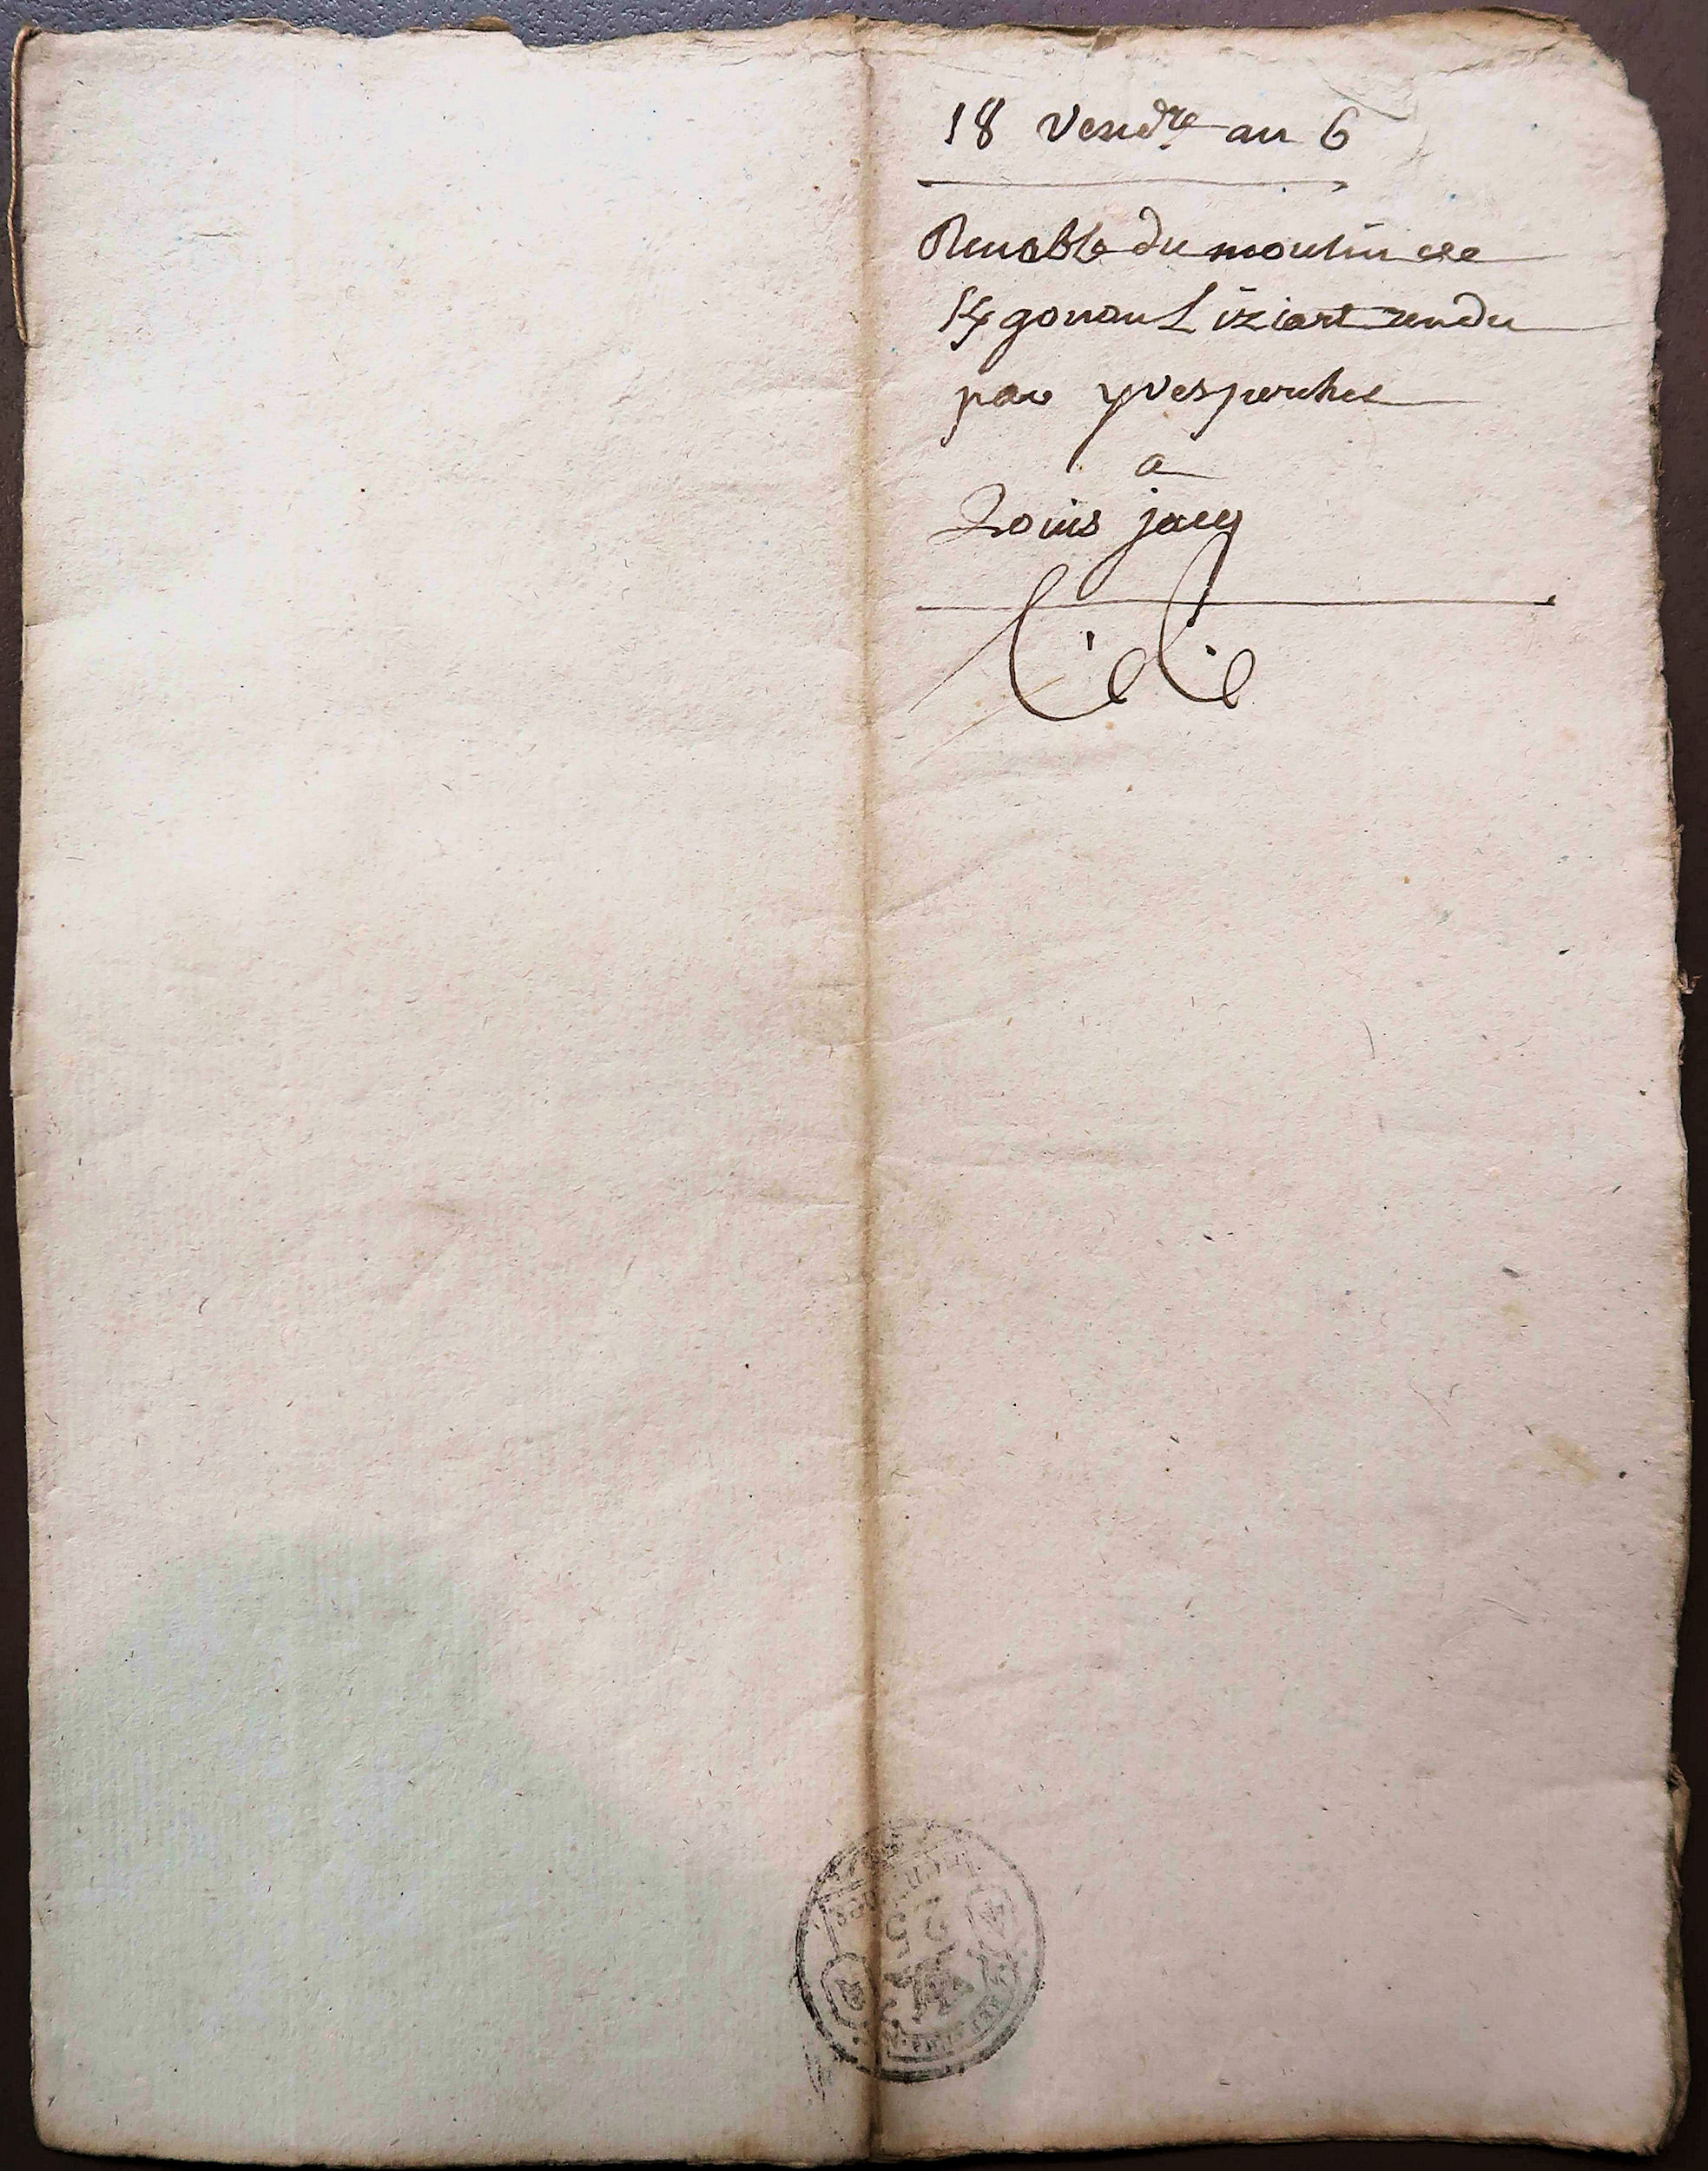 18 Vend.re an 6
Renable du moulin de
Kgonan Liziart rendu
par yves perhel
a
Louis jacq